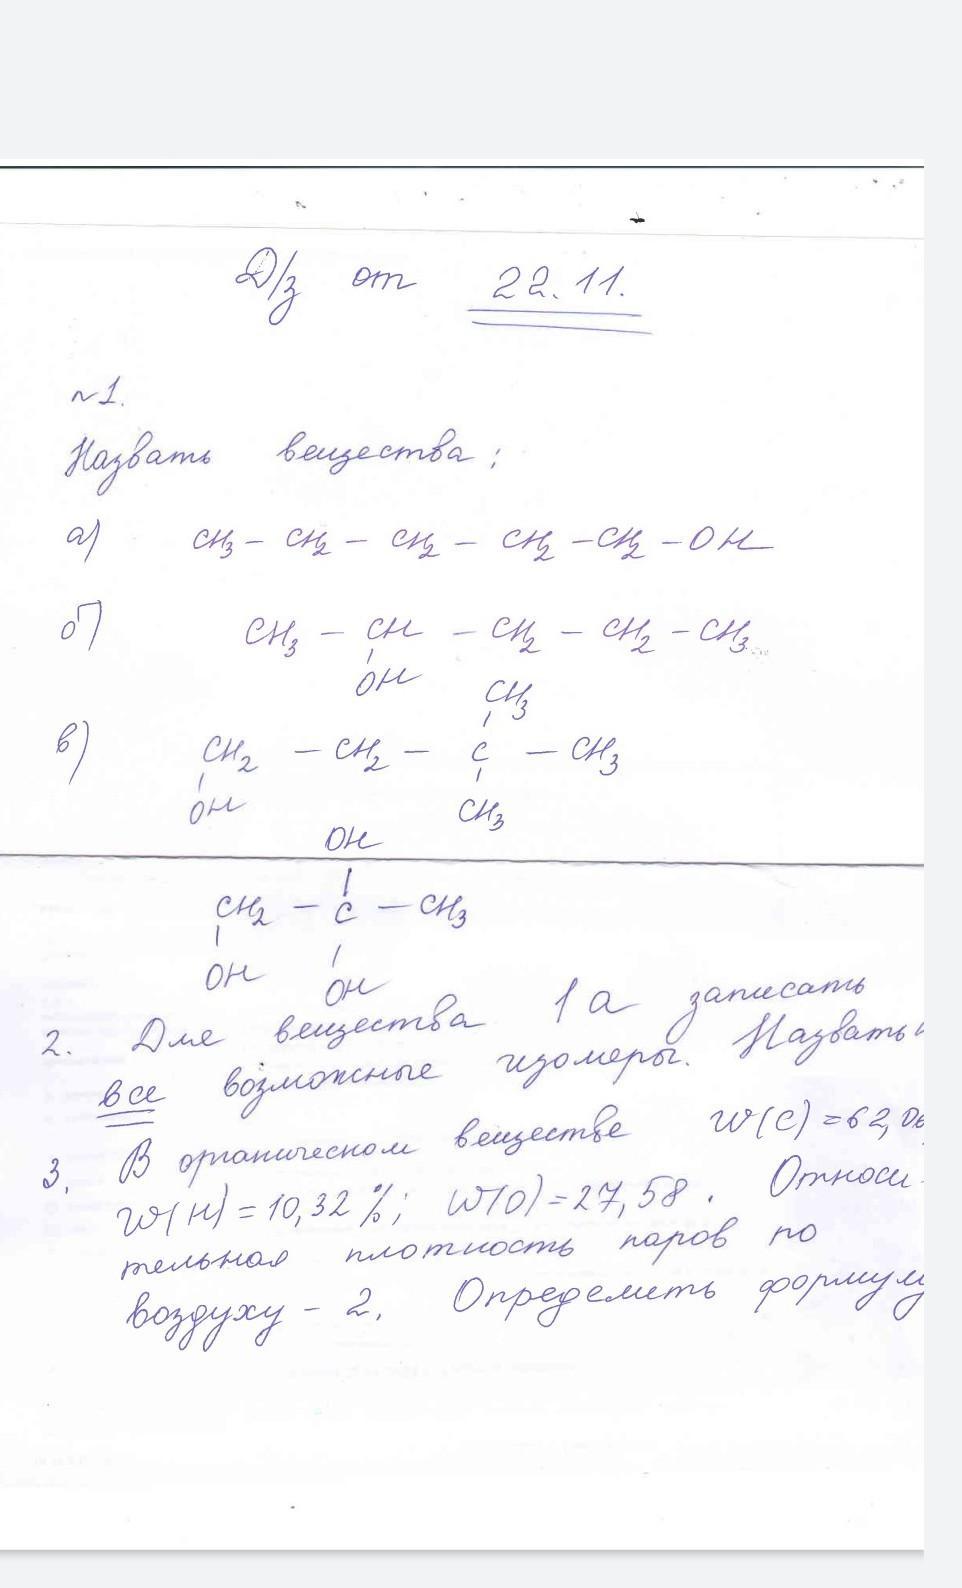 Д/з от 22.11.
№1.
Назвать вещества:
а) CH3 – CH2 – CH2 – CH2 – CH2 – OH
б) CH3 – CH – CH2 – CH2 – CH3
OH
CH3
в) CH2 – CH2 – C – CH3
OH
CH3
OH
CH2 – C – CH3
OH
OH
2. Для вещества 1а записать
все возможные изомеры. Назвать
3. В органическом веществе W(C) = 62,06
W(H) = 10,32 %; W(O) = 27,58. Относи-
тельная плотность паров по
воздуху – 2. Определить формулу